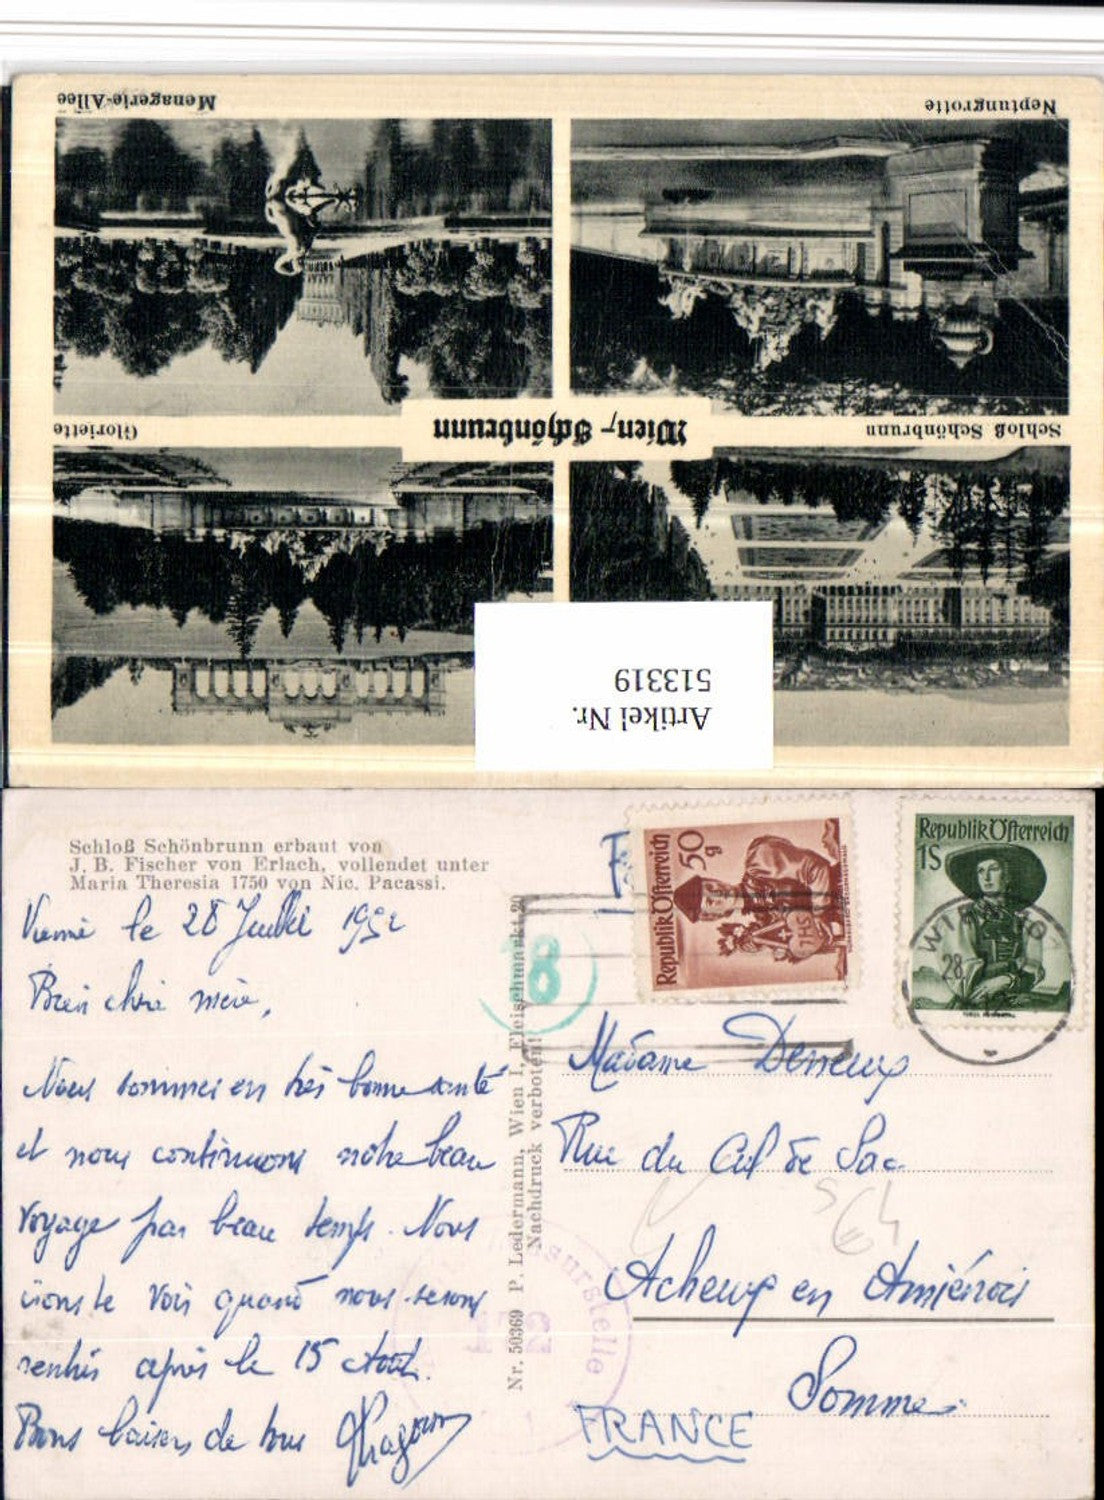 Menagerie-Allee
Neptungrotte
Gloriette
Wien, Schönbrunn
Schloß Schönbrunn
Artikel Nr.
513319
Schloß Schönbrunn erbaut von
J. B. Fischer von Erlach, vollendet unter
Maria Theresia 1750 von Nic. Pacassi.
Vienne le 28 Juillet 1952
Bien chère mère,
Nous sommes en très bonne santé
et nous continuons notre beau
voyage par beau temps. Nous
irons te voir quand nous serons
rentrés après le 15 Août.
Bons baisers de tous
Nr. 50369 P. Ledermann, Wien I, Fleischmarkt 20
Nachdruck verboten!
Republik Österreich
50 g
Republik Österreich
1 S
WIEN
28
8
Madame
Rue du Cul de Sac
Acheux en Amiénois
Somme
FRANCE